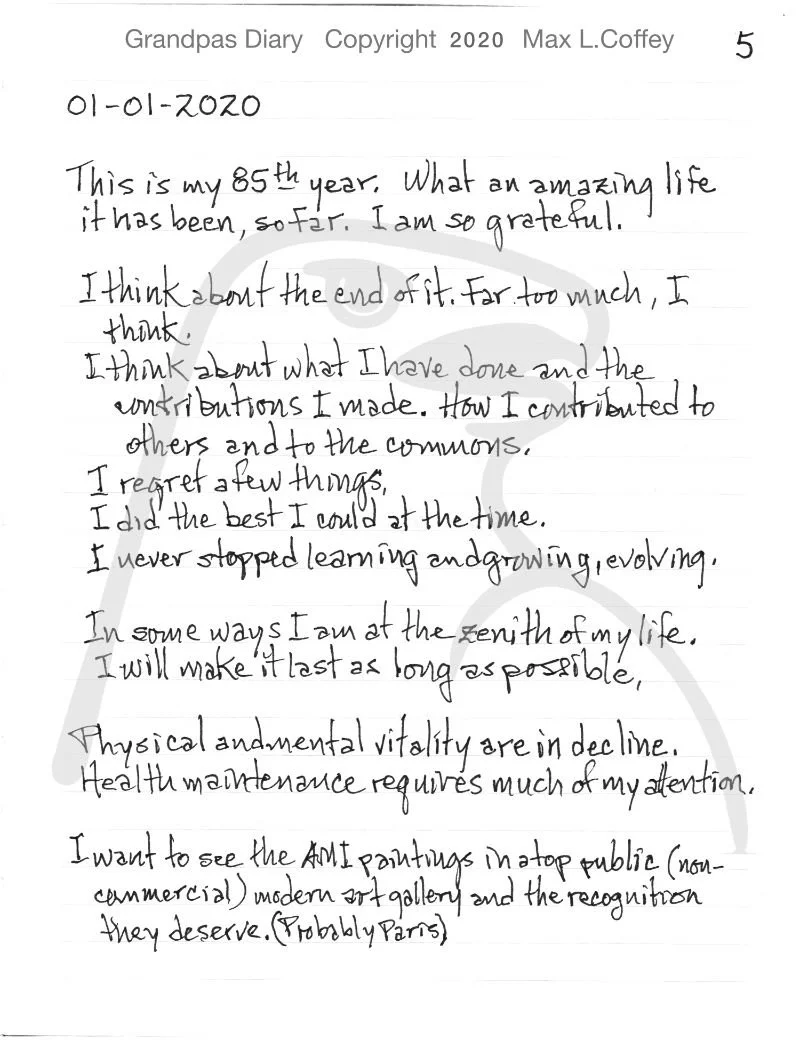 Grandpas Diary Copyright 2020 Max L.Coffey 5
01-01-2020
This is my 85th year. What an amazing life
it has been, so far. I am so grateful.
I think about the end of it. Far too much, I
think.
I think about what I have done and the
contributions I made. How I contributed to
others and to the commons.
I regret a few things,
I did the best I could at the time.
I never stopped learning and growing, evolving.
In some ways I am at the zenith of my life.
I will make it last as long as possible,
Physical and mental vitality are in decline.
Health maintenance requires much of my attention.
I want to see the AMI paintings in a top public (non-
commercial) modern art gallery and the recognition
they deserve. (Probably Paris)